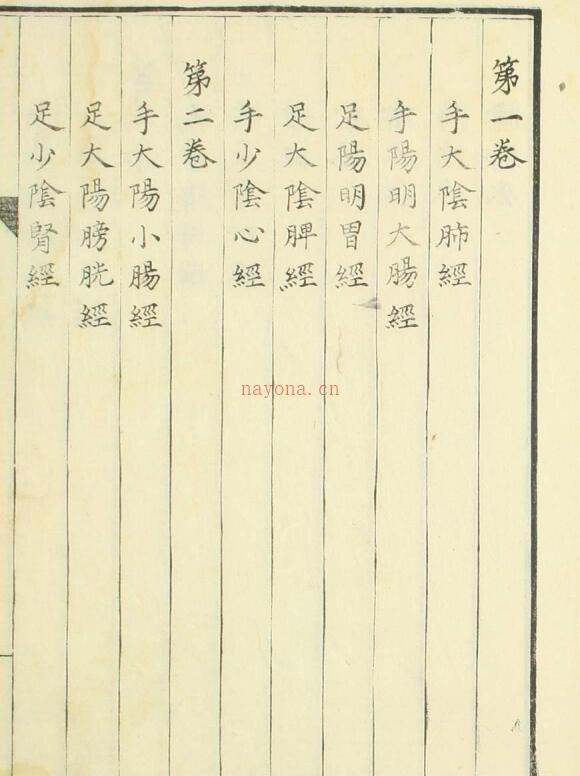 第一卷
手大陰肺經
手陽明大腸經
足陽明胃經
足大陰脾經
手少陰心經
第二卷
手大陽小腸經
足大陽膀胱經
足少陰腎經
nayona.cn